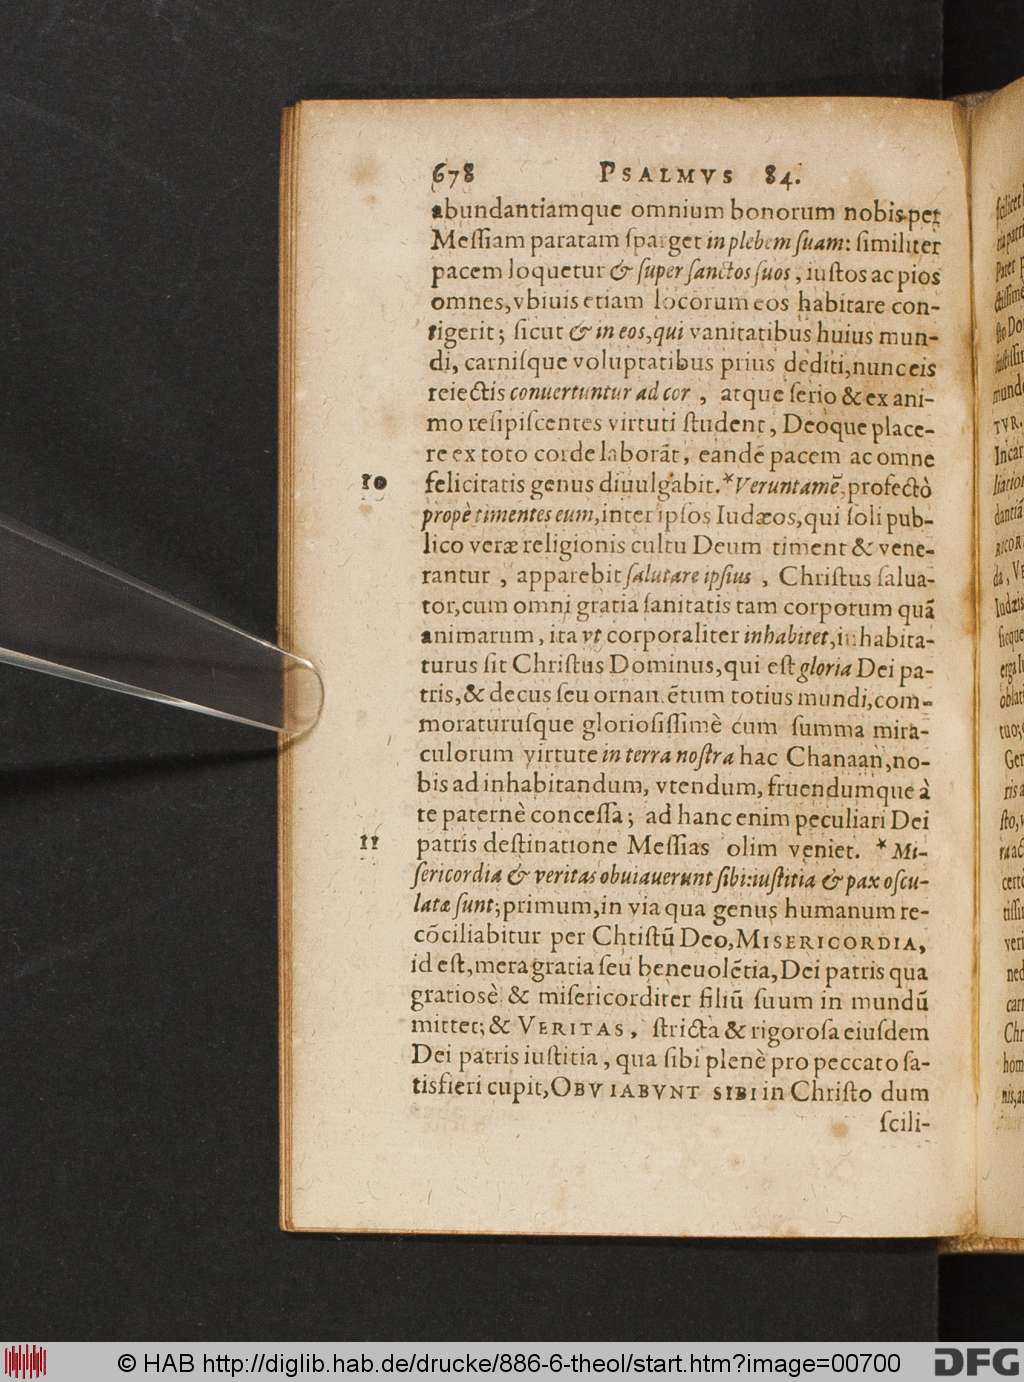 678 PSALMVS 84.
abundantiamque omnium bonorum nobis per
Meſſiam paratam ſparget in plebem ſuam: ſimiliter
pacem loquetur & ſuper ſanctos ſuos, iuſtos ac pios
omnes, vbiuis etiam locorum eos habitare con-
tigerit; ſicut & in eos, qui vanitatibus huius mun-
di, carniſque voluptatibus prius dediti, nunc eis
reiectis conuertuntur ad cor, atque ſerio & ex ani-
mo reſipiſcentes virtuti ſtudent, Deòque place-
re ex toto corde laborãt, eandẽ pacem ac omne
10 felicitatis genus diuulgabit. *Veruntamẽ, profectò
propè timentes eum, inter ipſos Iudæos, qui ſoli pub-
lico veræ religionis cultu Deum timent & vene-
rantur, apparebit ſalutare ipſius, Chriſtus ſalua-
tor, cum omni gratia ſanitatis tam corporum quã
animarum, ita vt corporaliter inhabitet, inhabita-
turus ſit Chriſtus Dominus, qui eſt gloria Dei pa-
tris, & decus ſeu ornamẽtum totius mundi, com-
moraturuſque glorioſiſſimè cum ſumma mira-
culorum virtute in terra noſtra hac Chanaan, no-
bis ad inhabitandum, vtendum, fruendumque à
te paternè conceſſa; ad hanc enim peculiari Dei
11 patris deſtinatione Meſſias olim veniet. *Mi-
ſericordia & veritas obuiauerunt ſibi: iuſtitia & pax oſcu-
latæ ſunt; primum, in via qua genus humanum re-
cõciliabitur per Chriſtũ Deo, MISERICORDIA,
id eſt, mera gratia ſeu beneuolẽtia, Dei patris qua
gratiosè & miſericorditer filiũ ſuum in mundũ
mittet; & VERITAS, ſtricta & rigoroſa eiuſdem
Dei patris iuſtitia, qua ſibi plenè pro peccato ſa-
tisfieri cupit, OBVIABVNT SIBI in Chriſto dum
ſcili-
© HAB http://diglib.hab.de/drucke/886-6-theol/start.htm?image=00700
DFG